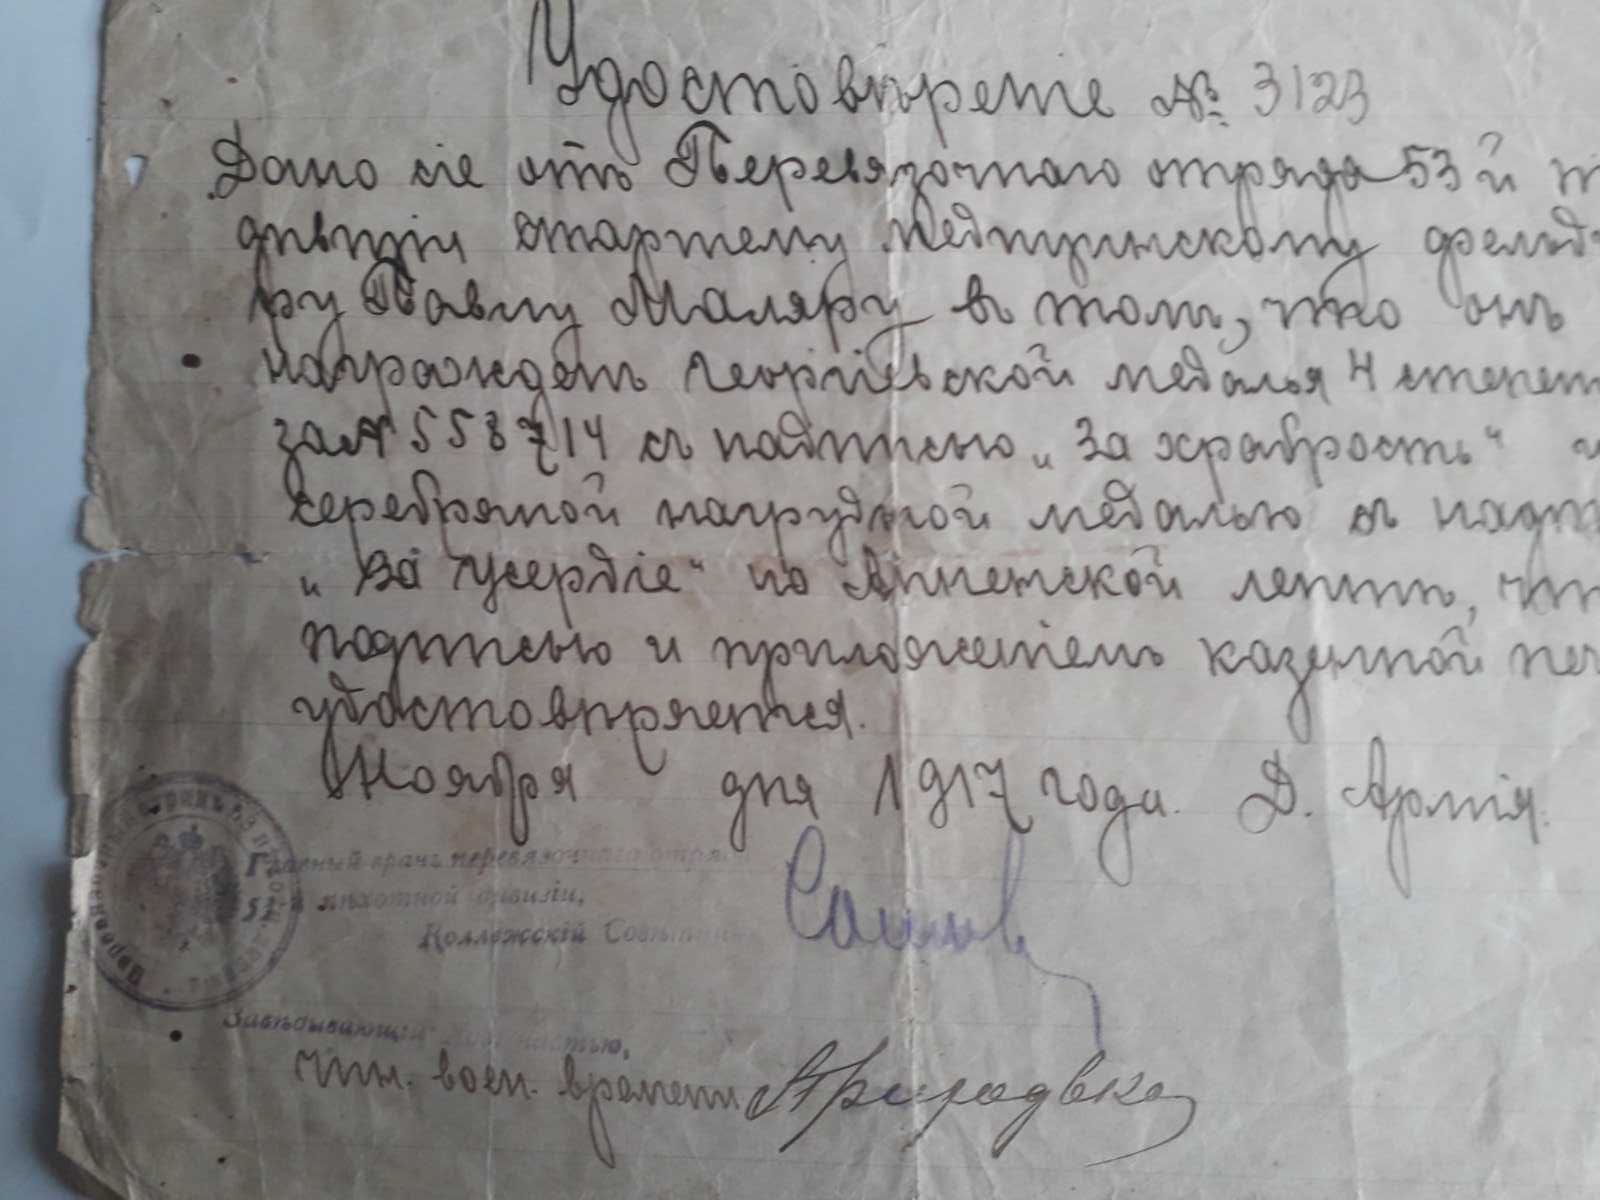 Удостовѣреніе № 3123
Дано сіе отъ Перевязочнаго отряда 53й
дивизіи старшему медицинскому фельд
ру Павлу Маляру въ томъ, что онъ
награжденъ Георгіевской медалья 4 степен
за № 558714 съ надписью „За храбрость“ и
серебряной нагрудной медалью съ надп
„За усердіе“ на Анненской лентѣ, что
подписью и приложеніемъ казенной печ
удостовѣряется.
Ноября дня 1917 года. Д. Армія.
Главный врачъ перевязочнаго отряда
53-й пѣхотной дивизіи,
Коллежскій Совѣтникъ
Завѣдывающій хоз частью,
чин. воен. времени